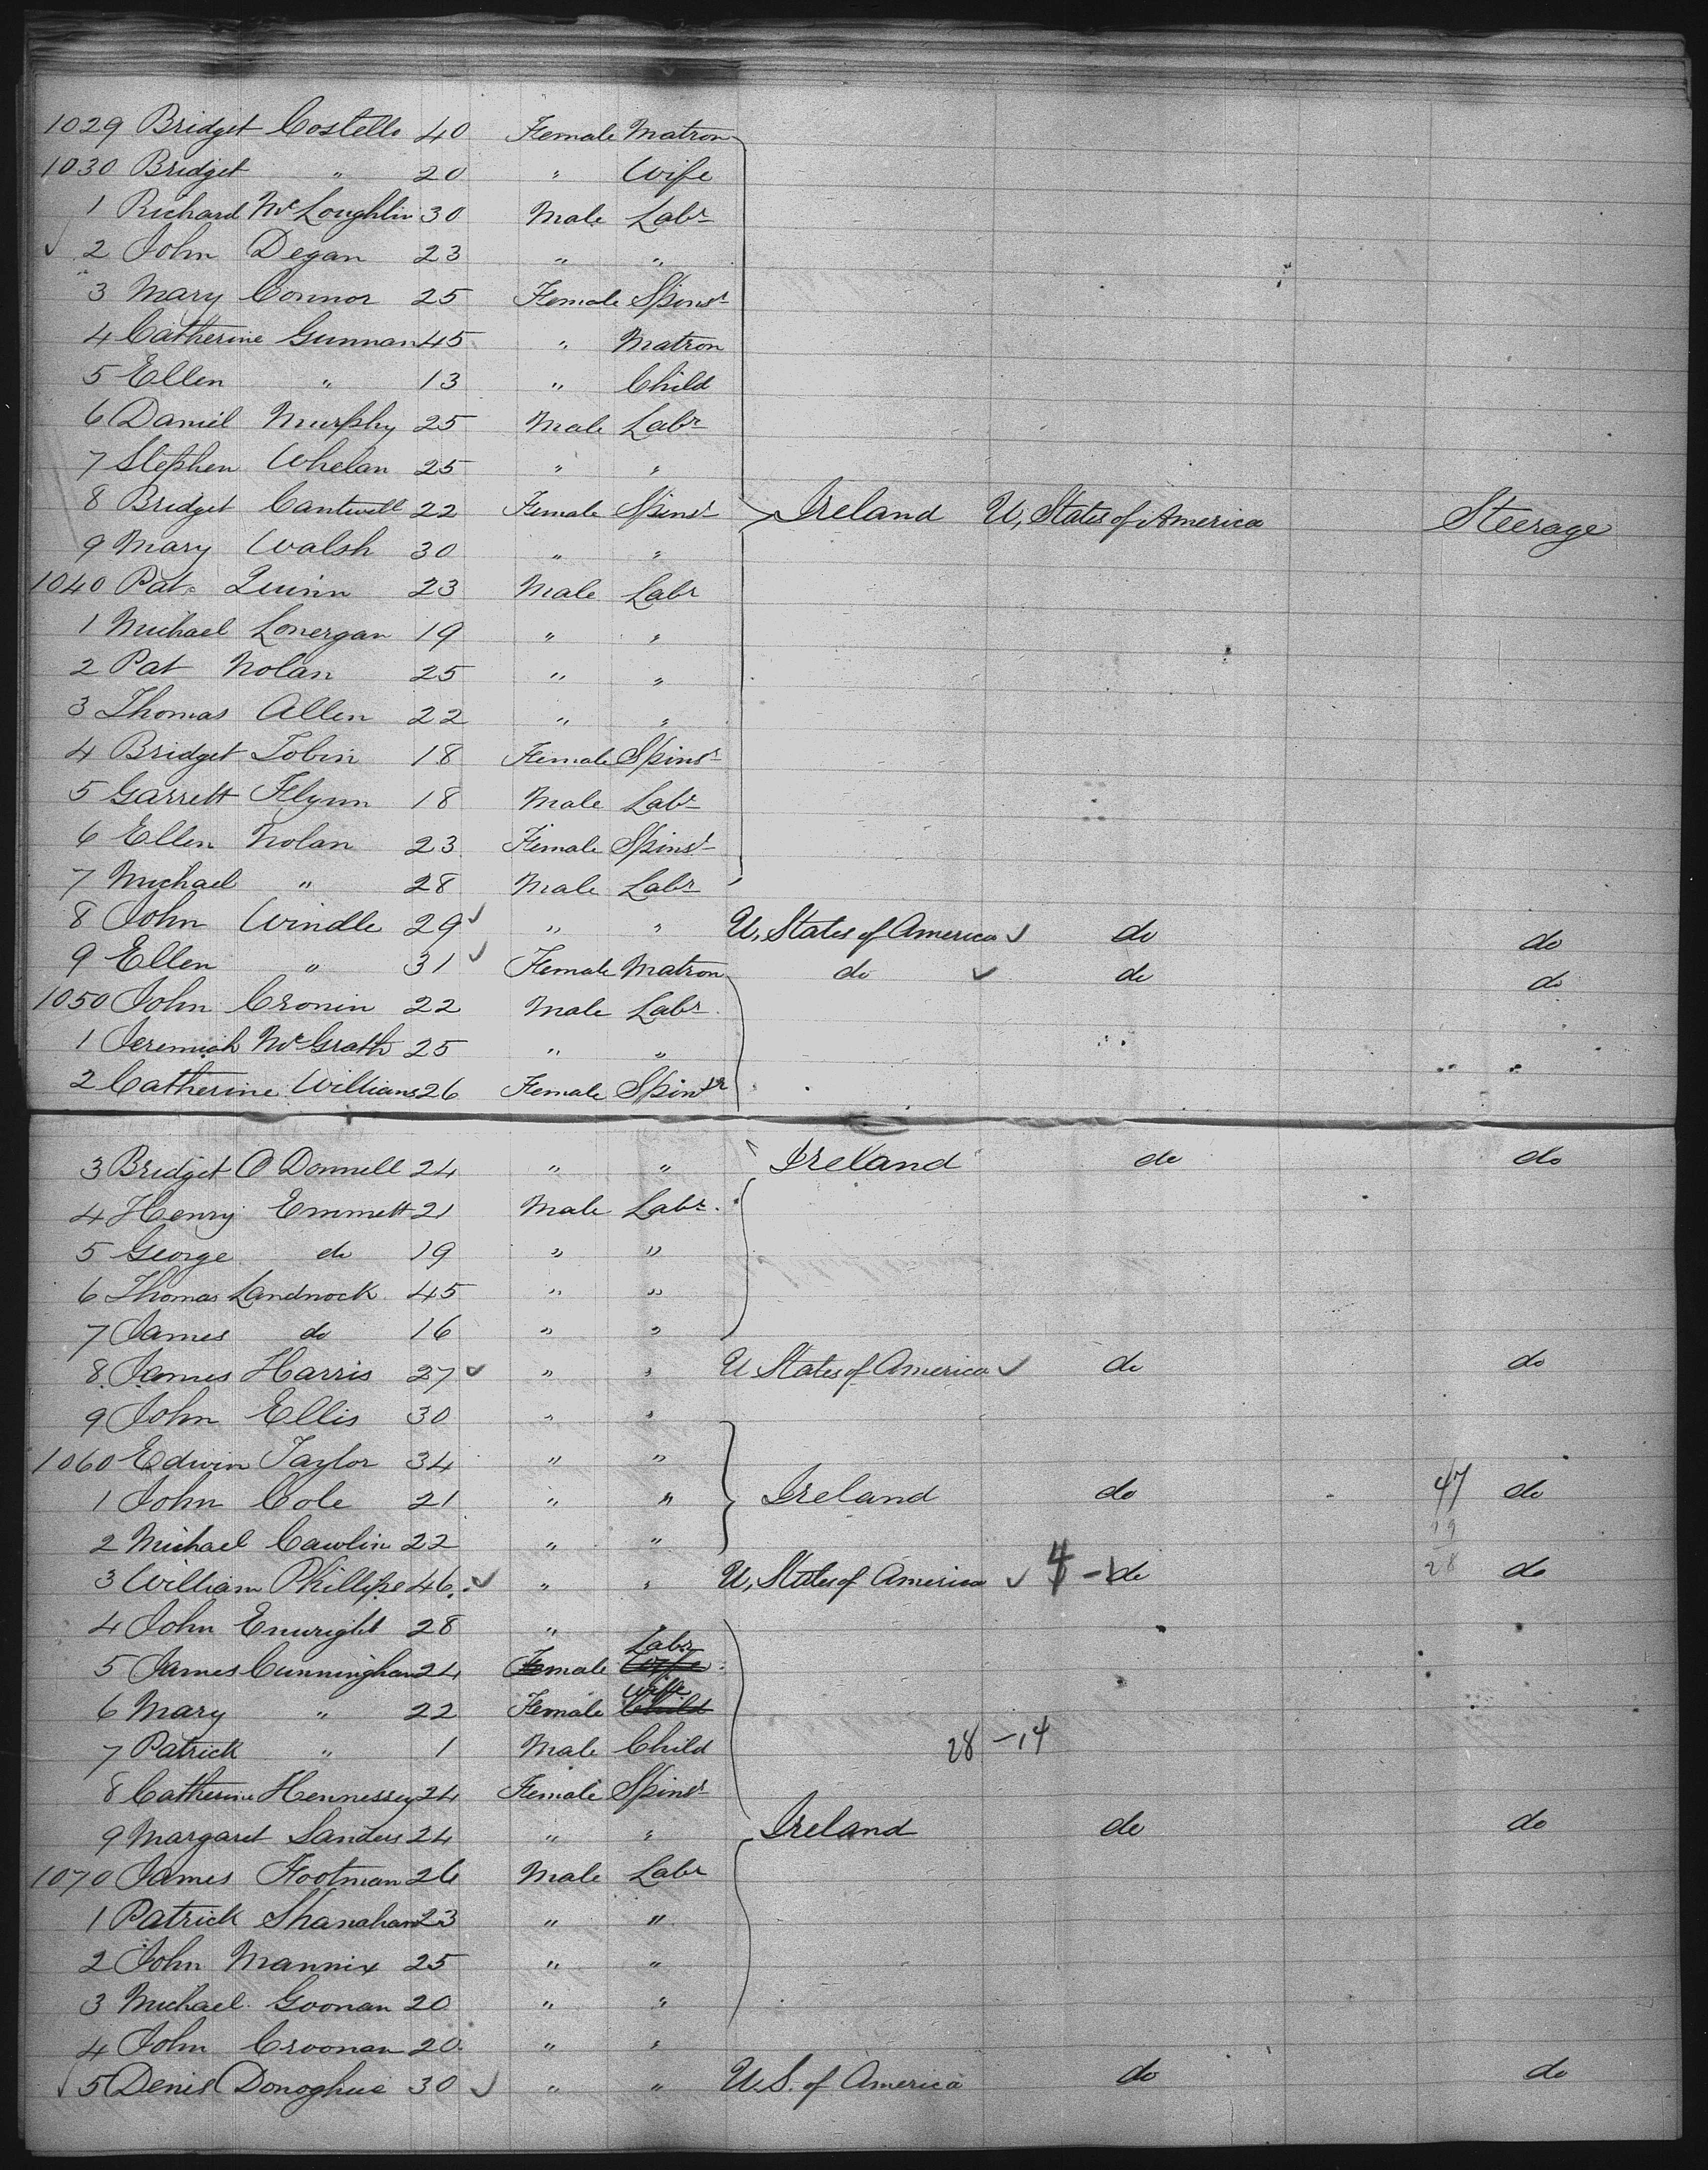 1029 Bridget Costello 40 Female Matron
1030 Bridget " 20 " Wife
1 Richard McLoughlin 30 Male Labr
2 John Degan 23 " "
3 Mary Connor 25 Female Spinsr
4 Catherine Gunnan 45 " Matron
5 Ellen " 13 " Child
6 Daniel Murphy 25 Male Labr
7 Stephen Whelan 25 " "
8 Bridget Cantwell 22 Female Spinsr Ireland U, States of America Steerage
9 Mary Walsh 30 " "
1040 Pat. Quinn 23 Male Labr
1 Michael Lonergan 19 " "
2 Pat Nolan 25 " "
3 Thomas Allen 22 " "
4 Bridget Tobin 18 Female Spinsr
5 Garrett Flynn 18 Male Labr
6 Ellen Nolan 23 Female Spinsr
7 Michael " 28 Male Labr
8 John Windle 29 " " U, States of America do do
9 Ellen " 31 Female Matron do do do
1050 John Cronin 22 Male Labr
1 Jeremiah McGrath 25 " "
2 Catherine Williams 26 Female Spinstr
3 Bridget O Donnell 24 " " Ireland do do
4 Henry Emmett 21 Male Labr.
5 George do 19 " "
6 Thomas Landnock 45 " "
7 James do 16 " "
8 James Harris 27 " " U States of America do do
9 John Ellis 30 " "
1060 Edwin Taylor 34 " "
1 John Cole 21 " " Ireland do 47 do
19
2 Michael Cawlin 22 " "
3 William Phillipse 46 " " U, States of America 4 - do 28 do
4 John Enwright 28 "
5 James Cunningham 24 Female Labr Wife
6 Mary " 22 Female Wife Child
7 Patrick " 1 Male Child 28 - 14
8 Catherine Hennessey 24 Female Spinsr
9 Margaret Sanders 24 " " Ireland do do
1070 James Footman 26 Male Labr
1 Patrick Shanahan 23 " "
2 John Mannix 25 " "
3 Michael Goonan 20 " "
4 John Croonan 20 " "
5 Denis Donoghue 30 " " U.S. of America do do